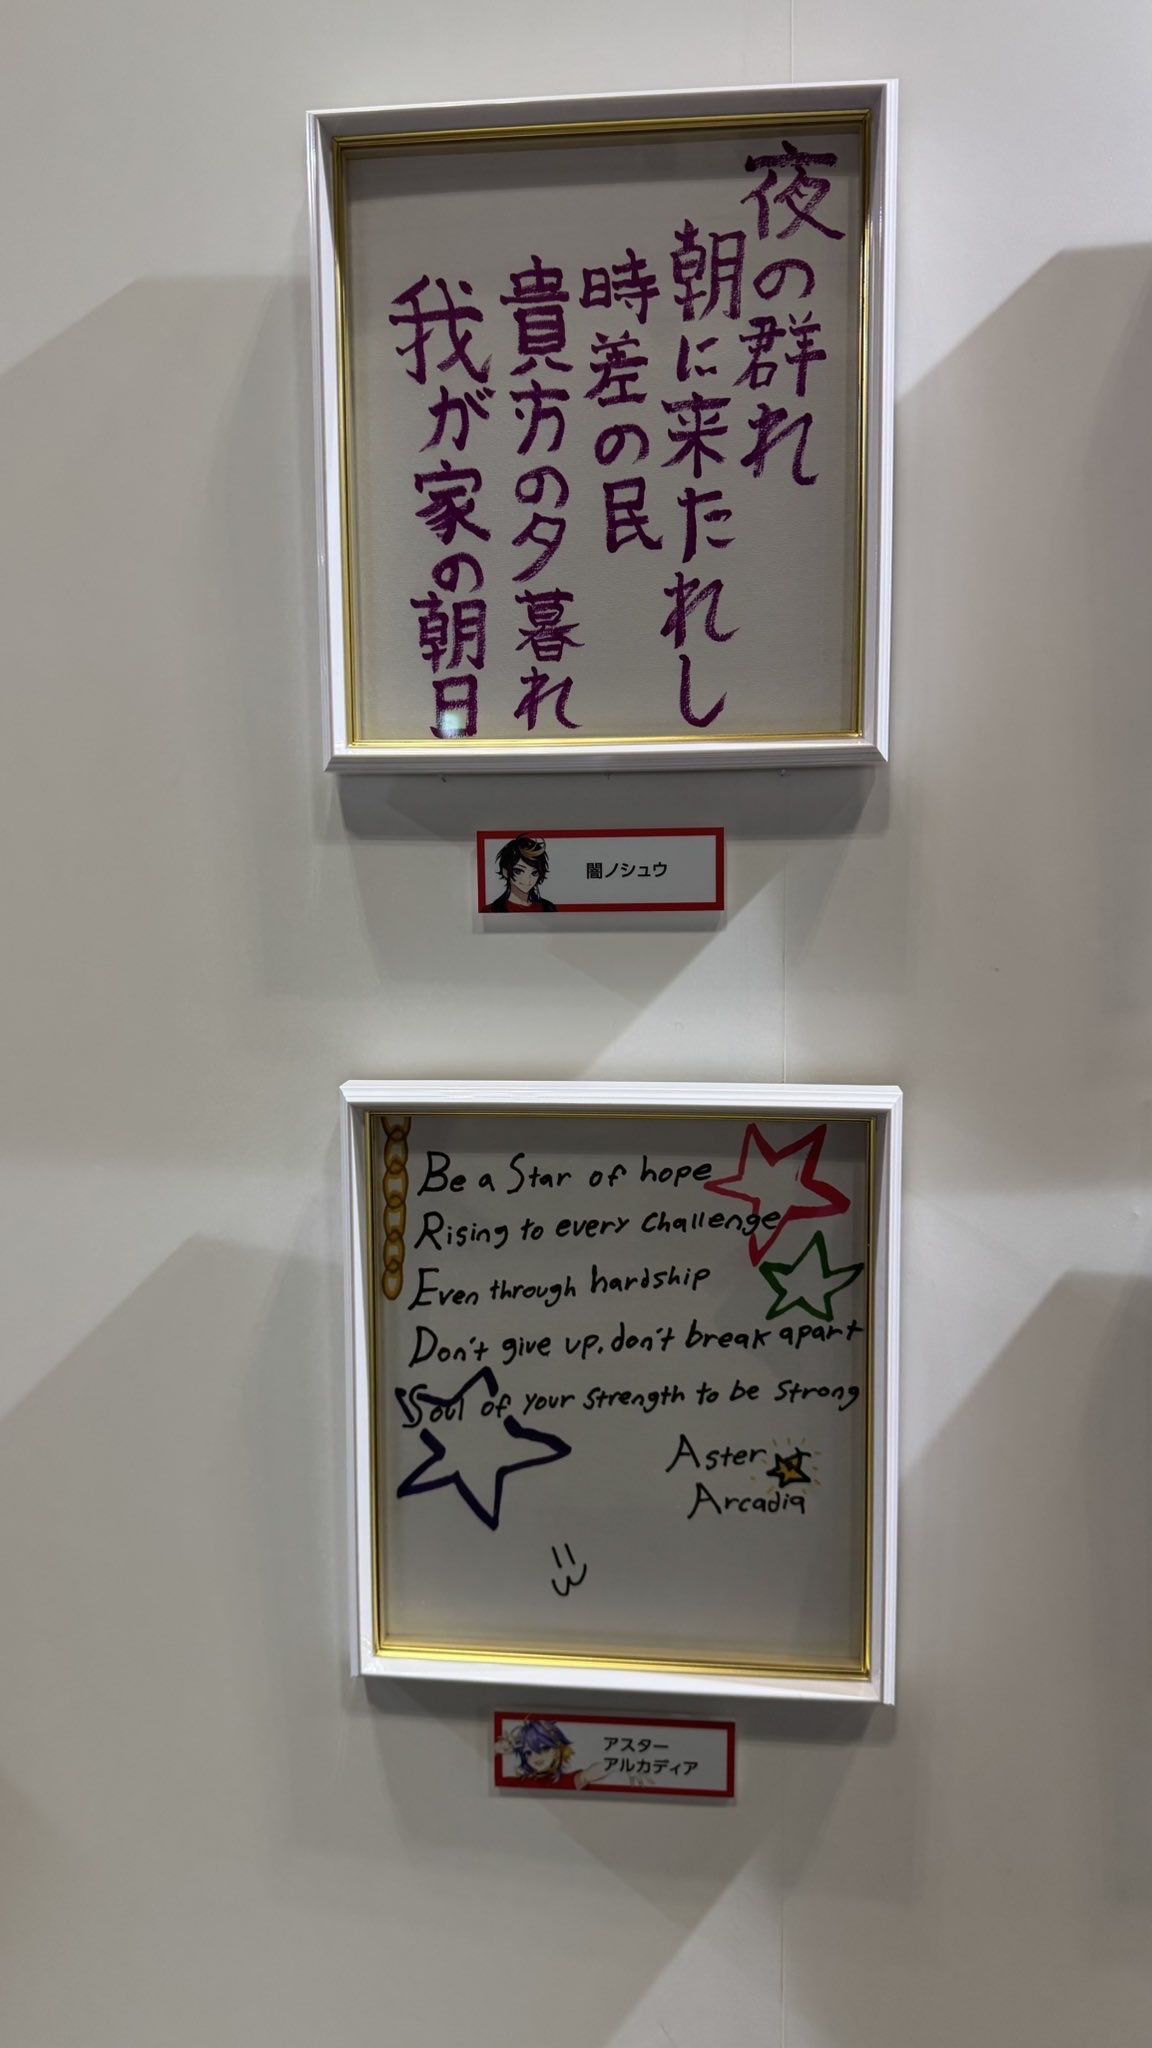 夜の群れ
朝に来たれし
時差の民
貴方の夕暮れ
我が家の朝日
闇ノシュウ
Be a Star of hope
Rising to every challenge
Even through hardship
Don't give up, don't break apart
Soul of your strength to be strong
Aster
Arcadia
アスター
アルカディア